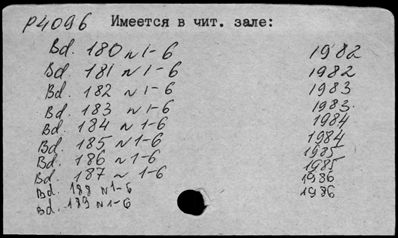 P4096 Имеется в чит. зале:
Bd. 180 N 1-6 1982
Bd. 181 N 1-6 1982
Bd. 182 N 1-6 1983
Bd. 183 N 1-6 1983.
Bd. 184 N 1-6 1984
Bd. 185 N 1-6 1984
Bd. 186 N 1-6 1985
Bd. 187 N 1-6 1985
Bd. 188 N 1-6 1986
Bd. 189 N 1-6 1986